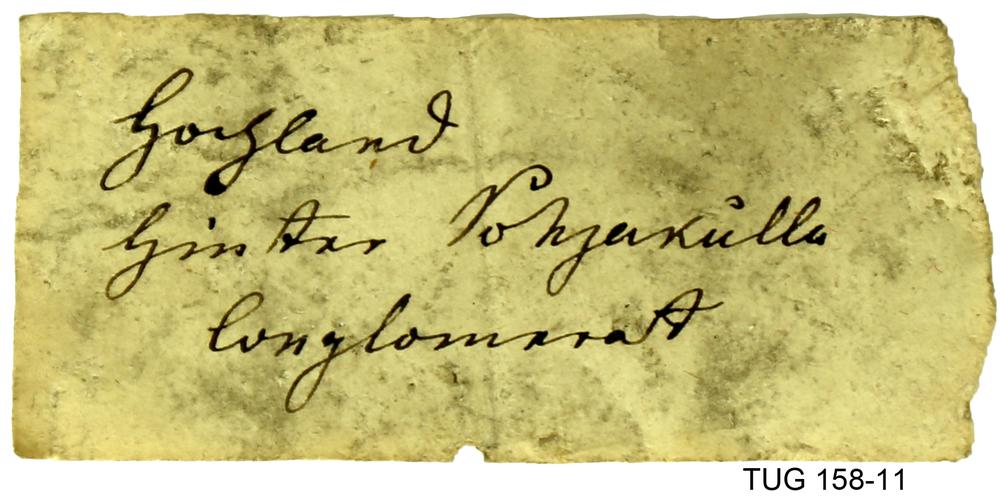 Hochland
hinter Pohjakülla
Conglomerat
TUG 158-11